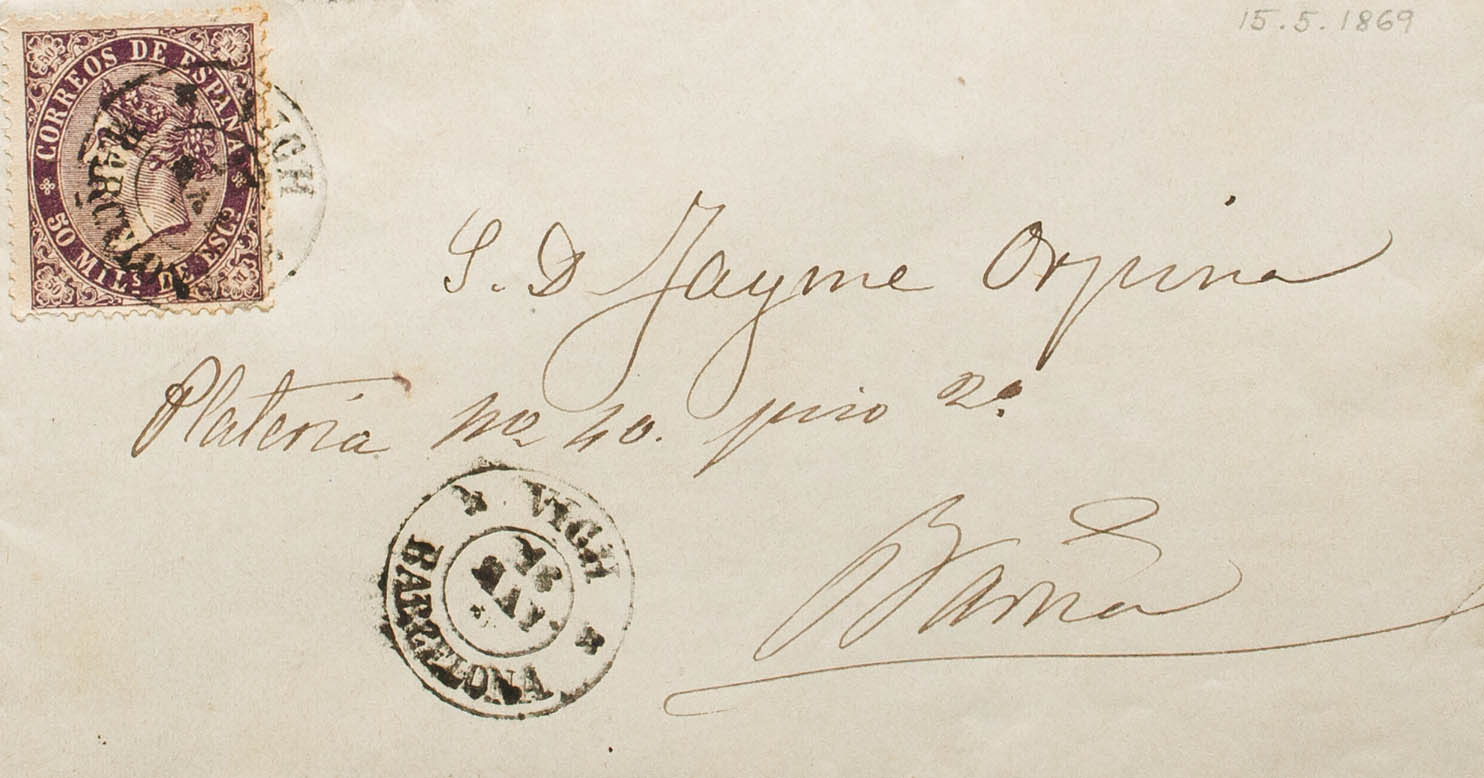 15.5.1869
CORREOS DE ESPAÑA
50 MIL.s DE ESC.o
VICH
S. D Jayme Orpina
Plateria nº 40. piso 2º
Barna
VICH
MAY.
BARCELONA